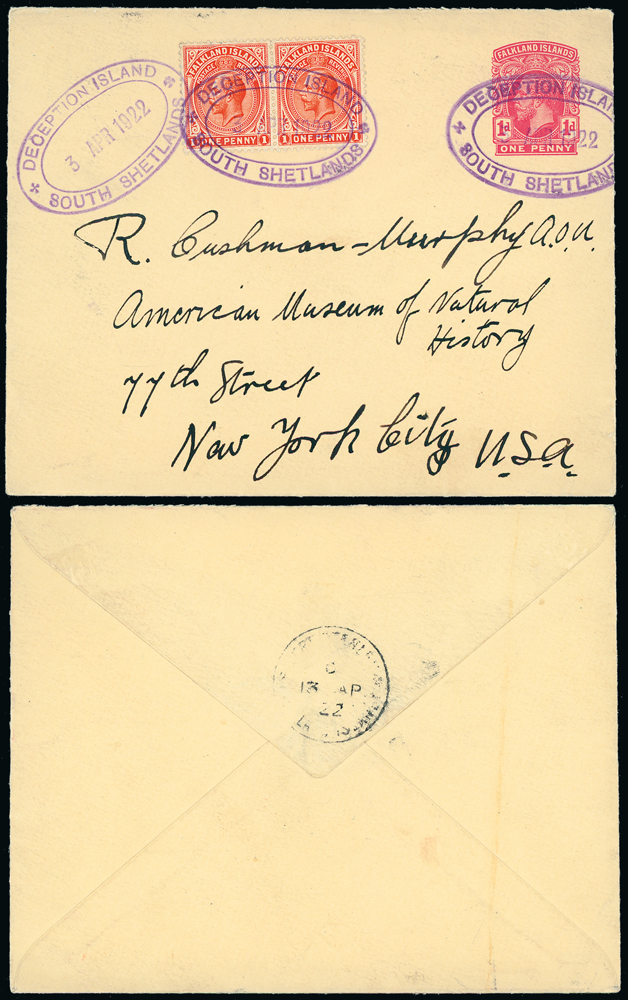 DECEPTION ISLAND
3 APR 1922
SOUTH SHETLANDS
FALKLAND ISLANDS
POSTAGE REVENUE
1 ONE PENNY 1
FALKLAND ISLANDS
1 ONE PENNY 1
DECEPTION ISLAND
1922
SOUTH SHETLANDS
FALKLAND ISLANDS
1d 1d
ONE PENNY
DECEPTION ISLAN
22
SOUTH SHETLAND
R. Cushman-Murphy A.O.U.
American Museum of Natural
History
77th Street
New York City U.S.A.
STANLEY
C
13 AP
22